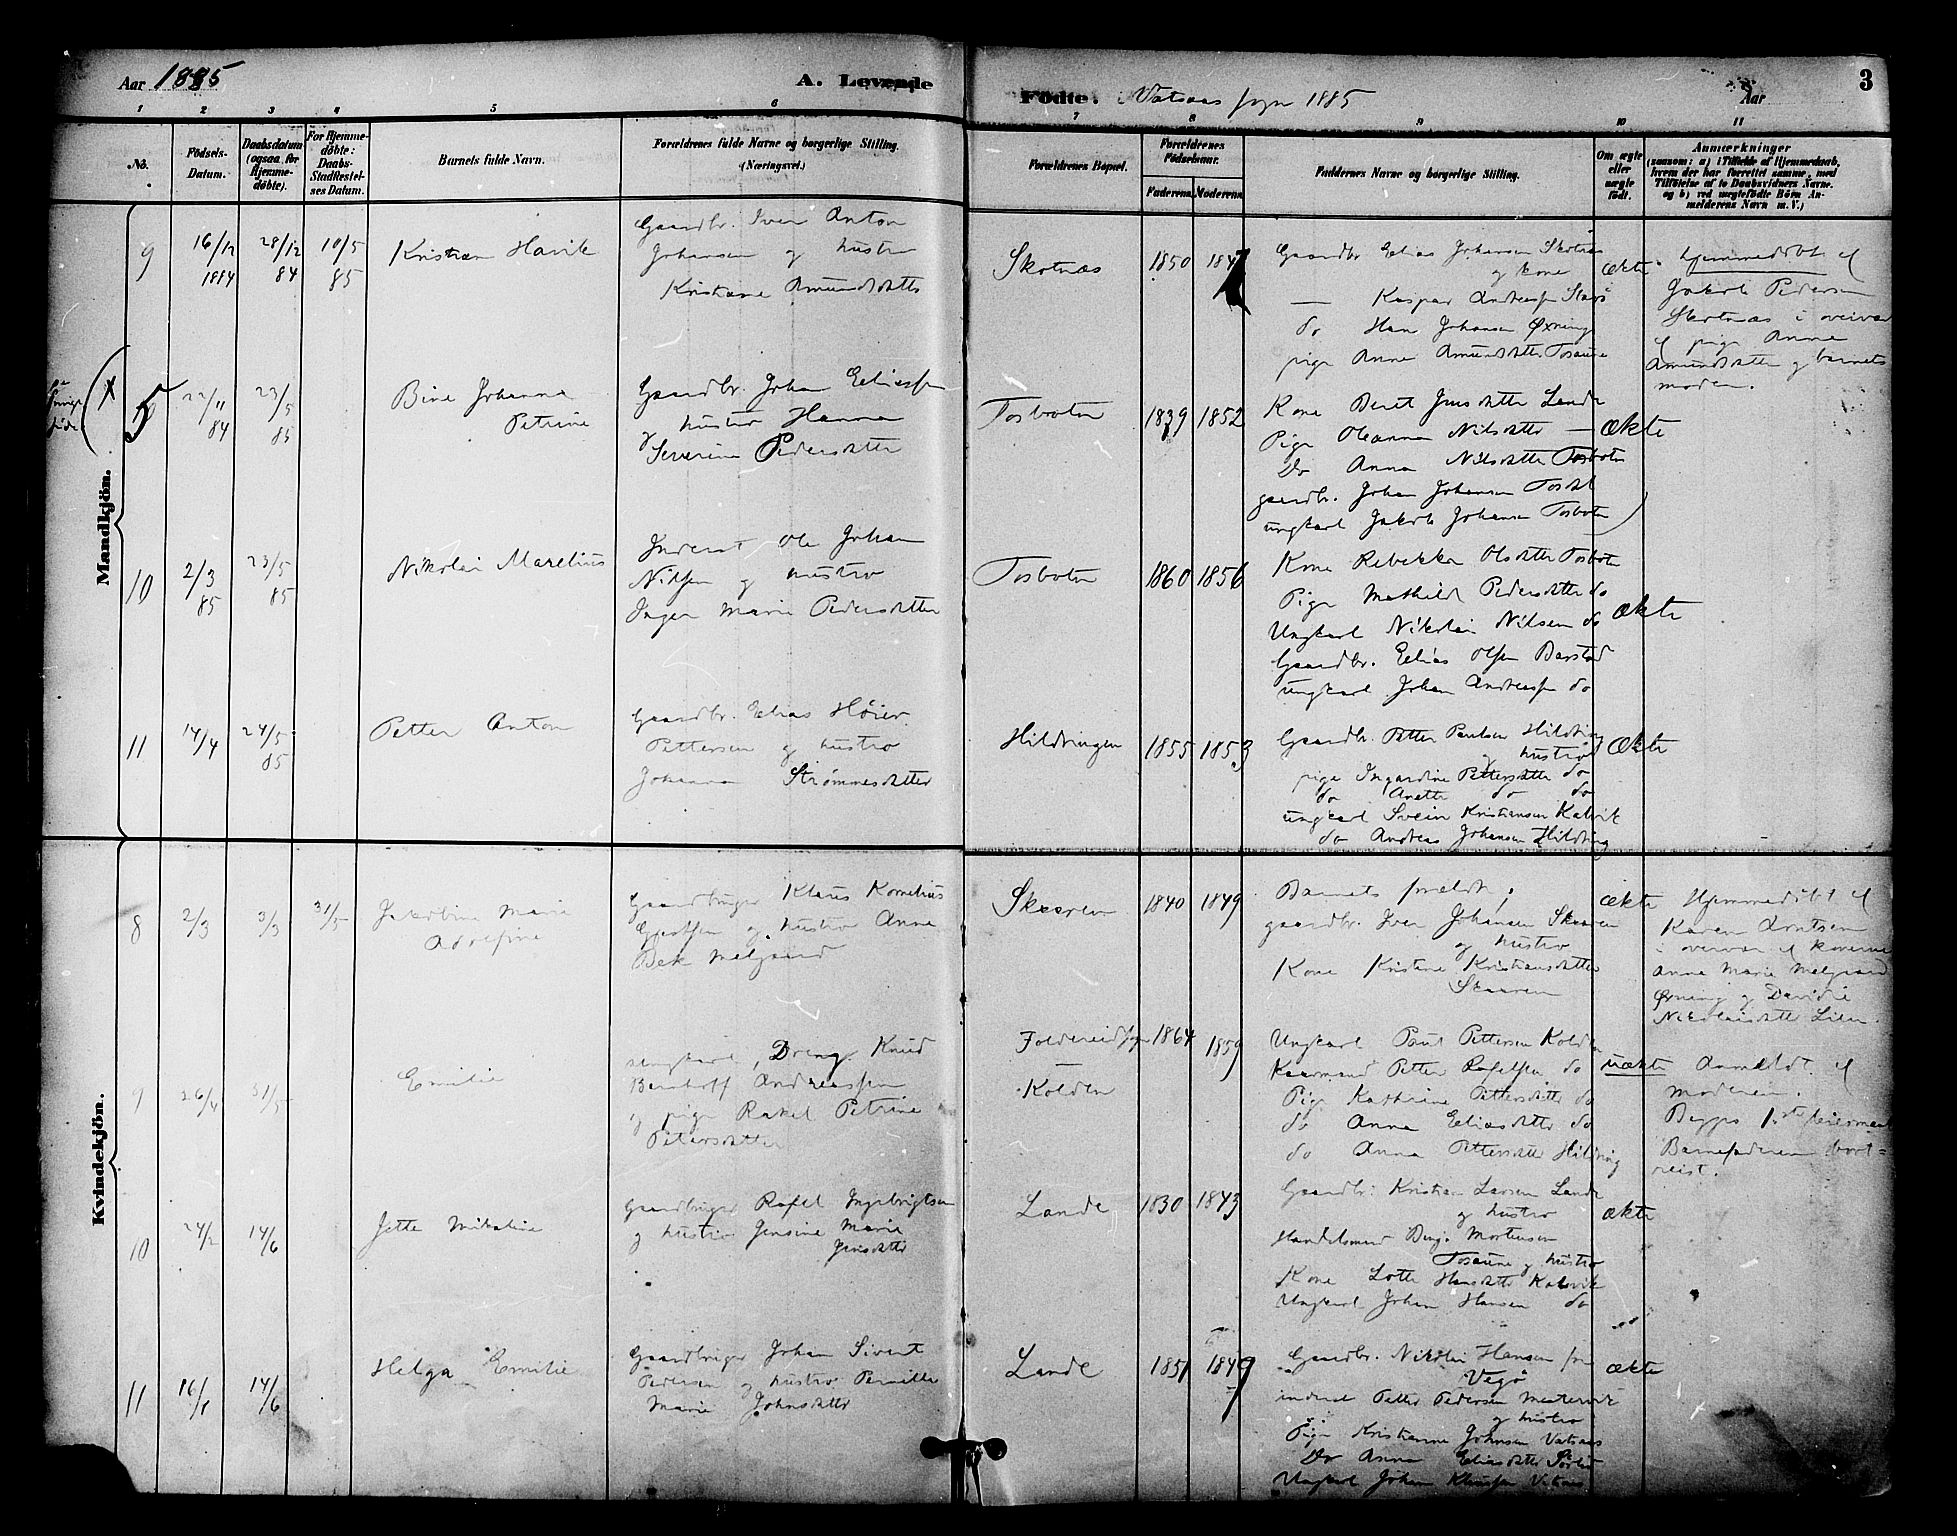 Aar 1885
A. Levende
Fødte. i Vatsaas sogn 1885
Aar
3
1 2 3 4 5 6 7 8 9 10 11
No.
Fødsels-Datum.
Daabsdatum (ogsaa for Hjemmedøbte).
For Hjemmedøbte: Daabs-Stadfæstelses Datum.
Barnets fulde Navn.
Forældrenes fulde Navne og borgerlige Stilling. (Næringsvei.)
Forældrenes Bopæl.
Forældrenes Fødselsaar.
Faderens. Moderens.
Faddernes Navne og borgerlige Stilling.
Om ægte eller uægte født.
Anmærkninger
(saasom: a) i Tilfælde af Hjemmedaab, hvem der har forrettet samme, med Tilføielse af to Daabsvidners Navne. og b) ved uægtefødte Børn Anmelderens Navn m. V.)
Mandkjön.
9
16/12 1884
28/12 84
10/5 85
Kristian Havik
Gaardbr. Iver Anton
Johansen og hustru
Kristiane Amundsdatter
Skotnæs
1850
Gaardbr Elias Johansen Skotnæs
og kone
— Kaspar Andreassen
do Hans Johansen Øxning
pige Anne Amundsdatter Tosaune
ækte
Hjemmedøbt af
Jakob Pedersen
Skotnæs i overvær
af pige Anne
Amundsdatter og barnets
moder.
5
22/11 84
23/5 85
Bine Johanna
Petrine
Gaardbr. Johan Eliassen
og hustru Hanna
Severine Pedersdatter
Tosboten
1839 1852
Kone Beret Jensdatter Lande
Pige Oleanna Nilsdatter —
Do Anna Nilsdatter Tosboten
gaardbr. Johan Johansen Tosdal
ungkarl Jakob Johansen Tosboten
ækte
10
2/3 85
23/5 85
Nikolai Marelius
Inderst Ole Johan
Nilsen og hustru
Inger Marie Pedersdatter
Tosboten
1860 1856
Kone Rebekka Olsdatter Tosboten
Pige Mathilde Pedersdatter do
Ungkarl Nikolai Nilsen do
Gaardbr. Elias Olsen Barstad
ungkarl Johan Andreassen do
ækte
11
14/4
24/5 85
Petter Anton
Gaardbr. Elias Høier
Pettersen og hustru
Johanna Strømmesdatter
Hildringen
1855 1853
Gaardbr. Petter Paulsen Hildring
og hustru
pige Ingardine Pettersdatter do
do Anette do do
ungkarl Svein Kristiansen Kalvik
do Andreas Johansen Hildring
ækte
Kvindekjön.
8
2/3
3/3
31/5
Jakobine Marie
Adolfine
Gaardbruger Klaus Kornelius
Gjertsen og hustru Anne
Bek Melgaard
Skaaren
1840 1849
Barnets forældre,
gaardbr. Iver Johansen Skaaren
og hustru
Kone Kristine Kristiansdatter
Skaaren
ækte
Hjemmedøbt af
Karen Arntsen
i overvær af konerne
Anne Marie Melgaard
Øxning og Davidie
Nikolaisdatter Lien.
9
26/4
31/5
Emilie
ungkarl, Dreng Knud
Bernhoff Andreassen
og pige Rakel Petrine
Petersdatter
Foldereid sogn
Kolden
1864 1859
Ungkarl Paul Pettersen Kolden
Kaarmand Petter Rafelsen do
Pige Kathrine Pettersdatter do
do Anna Eliasdatter do
do Anna Pettersdatter Hildring
uækte
Anmeldt af
moderen.
Begges 1.ste leiermaal
Barnefaderen bortreist.
10
24/2
14/6
Jette Mikaline
Gaardbruger Rafel Ingebrigtsen
og hustru Jensine Marie
Jensdatter
Lande
1830 1843
Gaardbr. Kristian Larsen Lande
og hustru
Handelsmand Benj. Mortensen
Tosaune og hustru
Kone Lotte Hansdatter Kalvik
Ungkarl Johan Hansen do
ækte
11
14/6
Helga Emilie
Gaardbruger Johan Sivert
Pedersen og hustru Pernille
Marie Johnsdatter
Lande
1851 1849
Gaardbr. Nikolai Hansen fra
Vegø
inderst Petter Pedersen
og hustru
Pige Kristianne Johnsen Vatsaas
Do Anna Eliasdatter
Ungkarl Johan Klausen Vatsaas
ækte